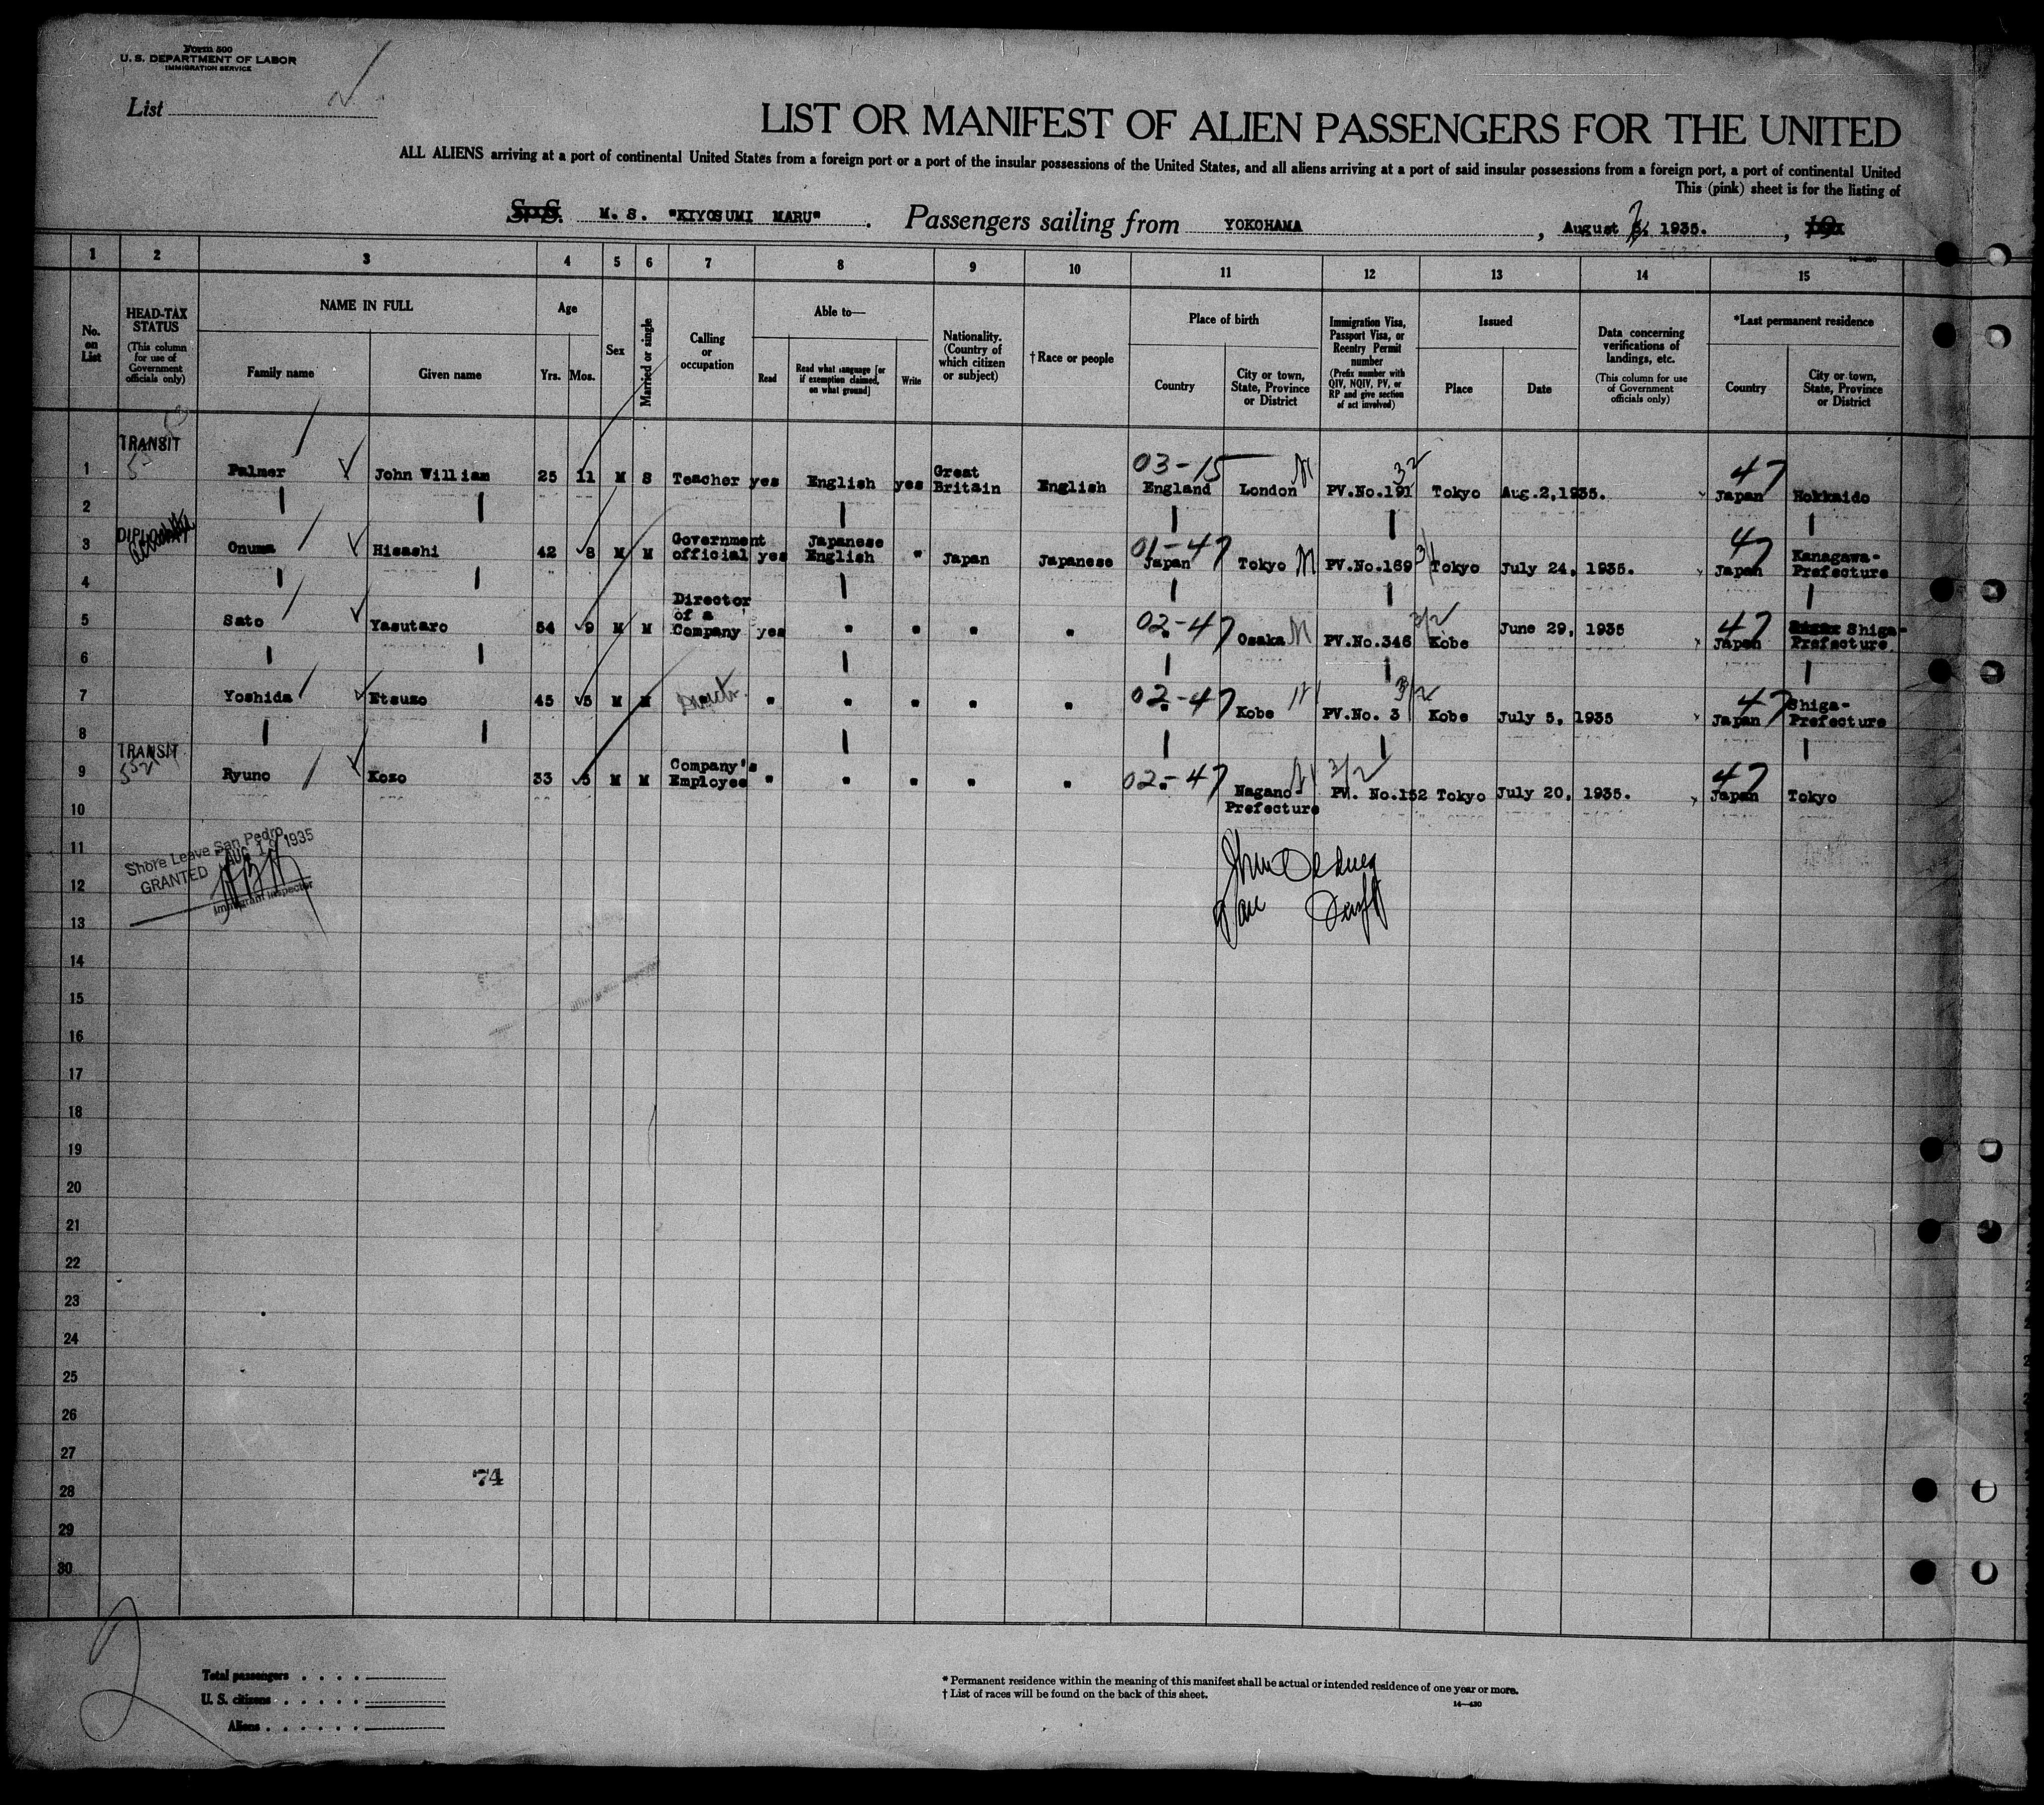 Form 500
U. S. DEPARTMENT OF LABOR
IMMIGRATION SERVICE
List
LIST OR MANIFEST OF ALIEN PASSENGERS FOR THE UNITED
ALL ALIENS arriving at a port of continental United States from a foreign port or a port of the insular possessions of the United States, and all aliens arriving at a port of said insular possessions from a foreign port, a port of continental United
This (pink) sheet is for the listing of
S. S. M. S. "KIYOSUMI MARU". Passengers sailing from YOKOHAMA, August 7, 1935. , 19
1 2 3 4 5 6 7 8 9 10 11 12 13 14 15
No. on List
HEAD-TAX STATUS
(This column for use of Government officials only)
NAME IN FULL
Family name
Given name
Age
Yrs. Mos.
Sex
Married or single
Calling or occupation
Able to—
Read
Read what language [or if exemption claimed, on what ground]
Write
Nationality. (Country of which citizen or subject)
† Race or people
Place of birth
Country
City or town, State, Province or District
Immigration Visa, Passport Visa, or Reentry Permit number
(Prefix number with QIV, NQIV, PV, or RP and give section of act involved)
Issued
Place
Date
Data concerning verifications of landings, etc.
(This column for use of Government officials only)
*Last permanent residence
Country
City or town, State, Province or District
TRANSIT
03-15 32 47
1 Palmer John William 25 11 M S Teacher yes English yes Great Britain English England London PV.No.191 Tokyo Aug.2,1935. Japan Hokkaido
2
01-47 3/1 47
3 Onuma Hisashi 42 8 M M Government official yes Japanese English " Japan Japanese Japan Tokyo PV.No.169 Tokyo July 24, 1935. Japan Kanagawa-Prefecture
4
02-47 3/2 47
5 Sato Yasutaro 54 9 M M Director of a Company yes " " " " " Osaka PV.No.346 Kobe June 29, 1935 Japan Shiga-Prefecture
6
02-47 3/2 47
7 Yoshida Etsuzo 45 5 M M " " " " " " Kobe PV.No. 3 Kobe July 5, 1935 Japan Shiga-Prefecture
8
TRANSIT
02-47 3/2 47
9 Ryuno Kozo 33 5 M M Company's Employee " " " " " " Nagano-Prefecture PV. No.152 Tokyo July 20, 1935. Japan Tokyo
10
11
12
13
14
15
16
17
18
19
20
21
22
23
24
25
26
27
28
29
30
Shore Leave San Pedro
GRANTED AUG 19 1935
Immigrant Inspector
74
2
Total passengers
U. S. citizens
Aliens
* Permanent residence within the meaning of this manifest shall be actual or intended residence of one year or more.
† List of races will be found on the back of this sheet.
14—430